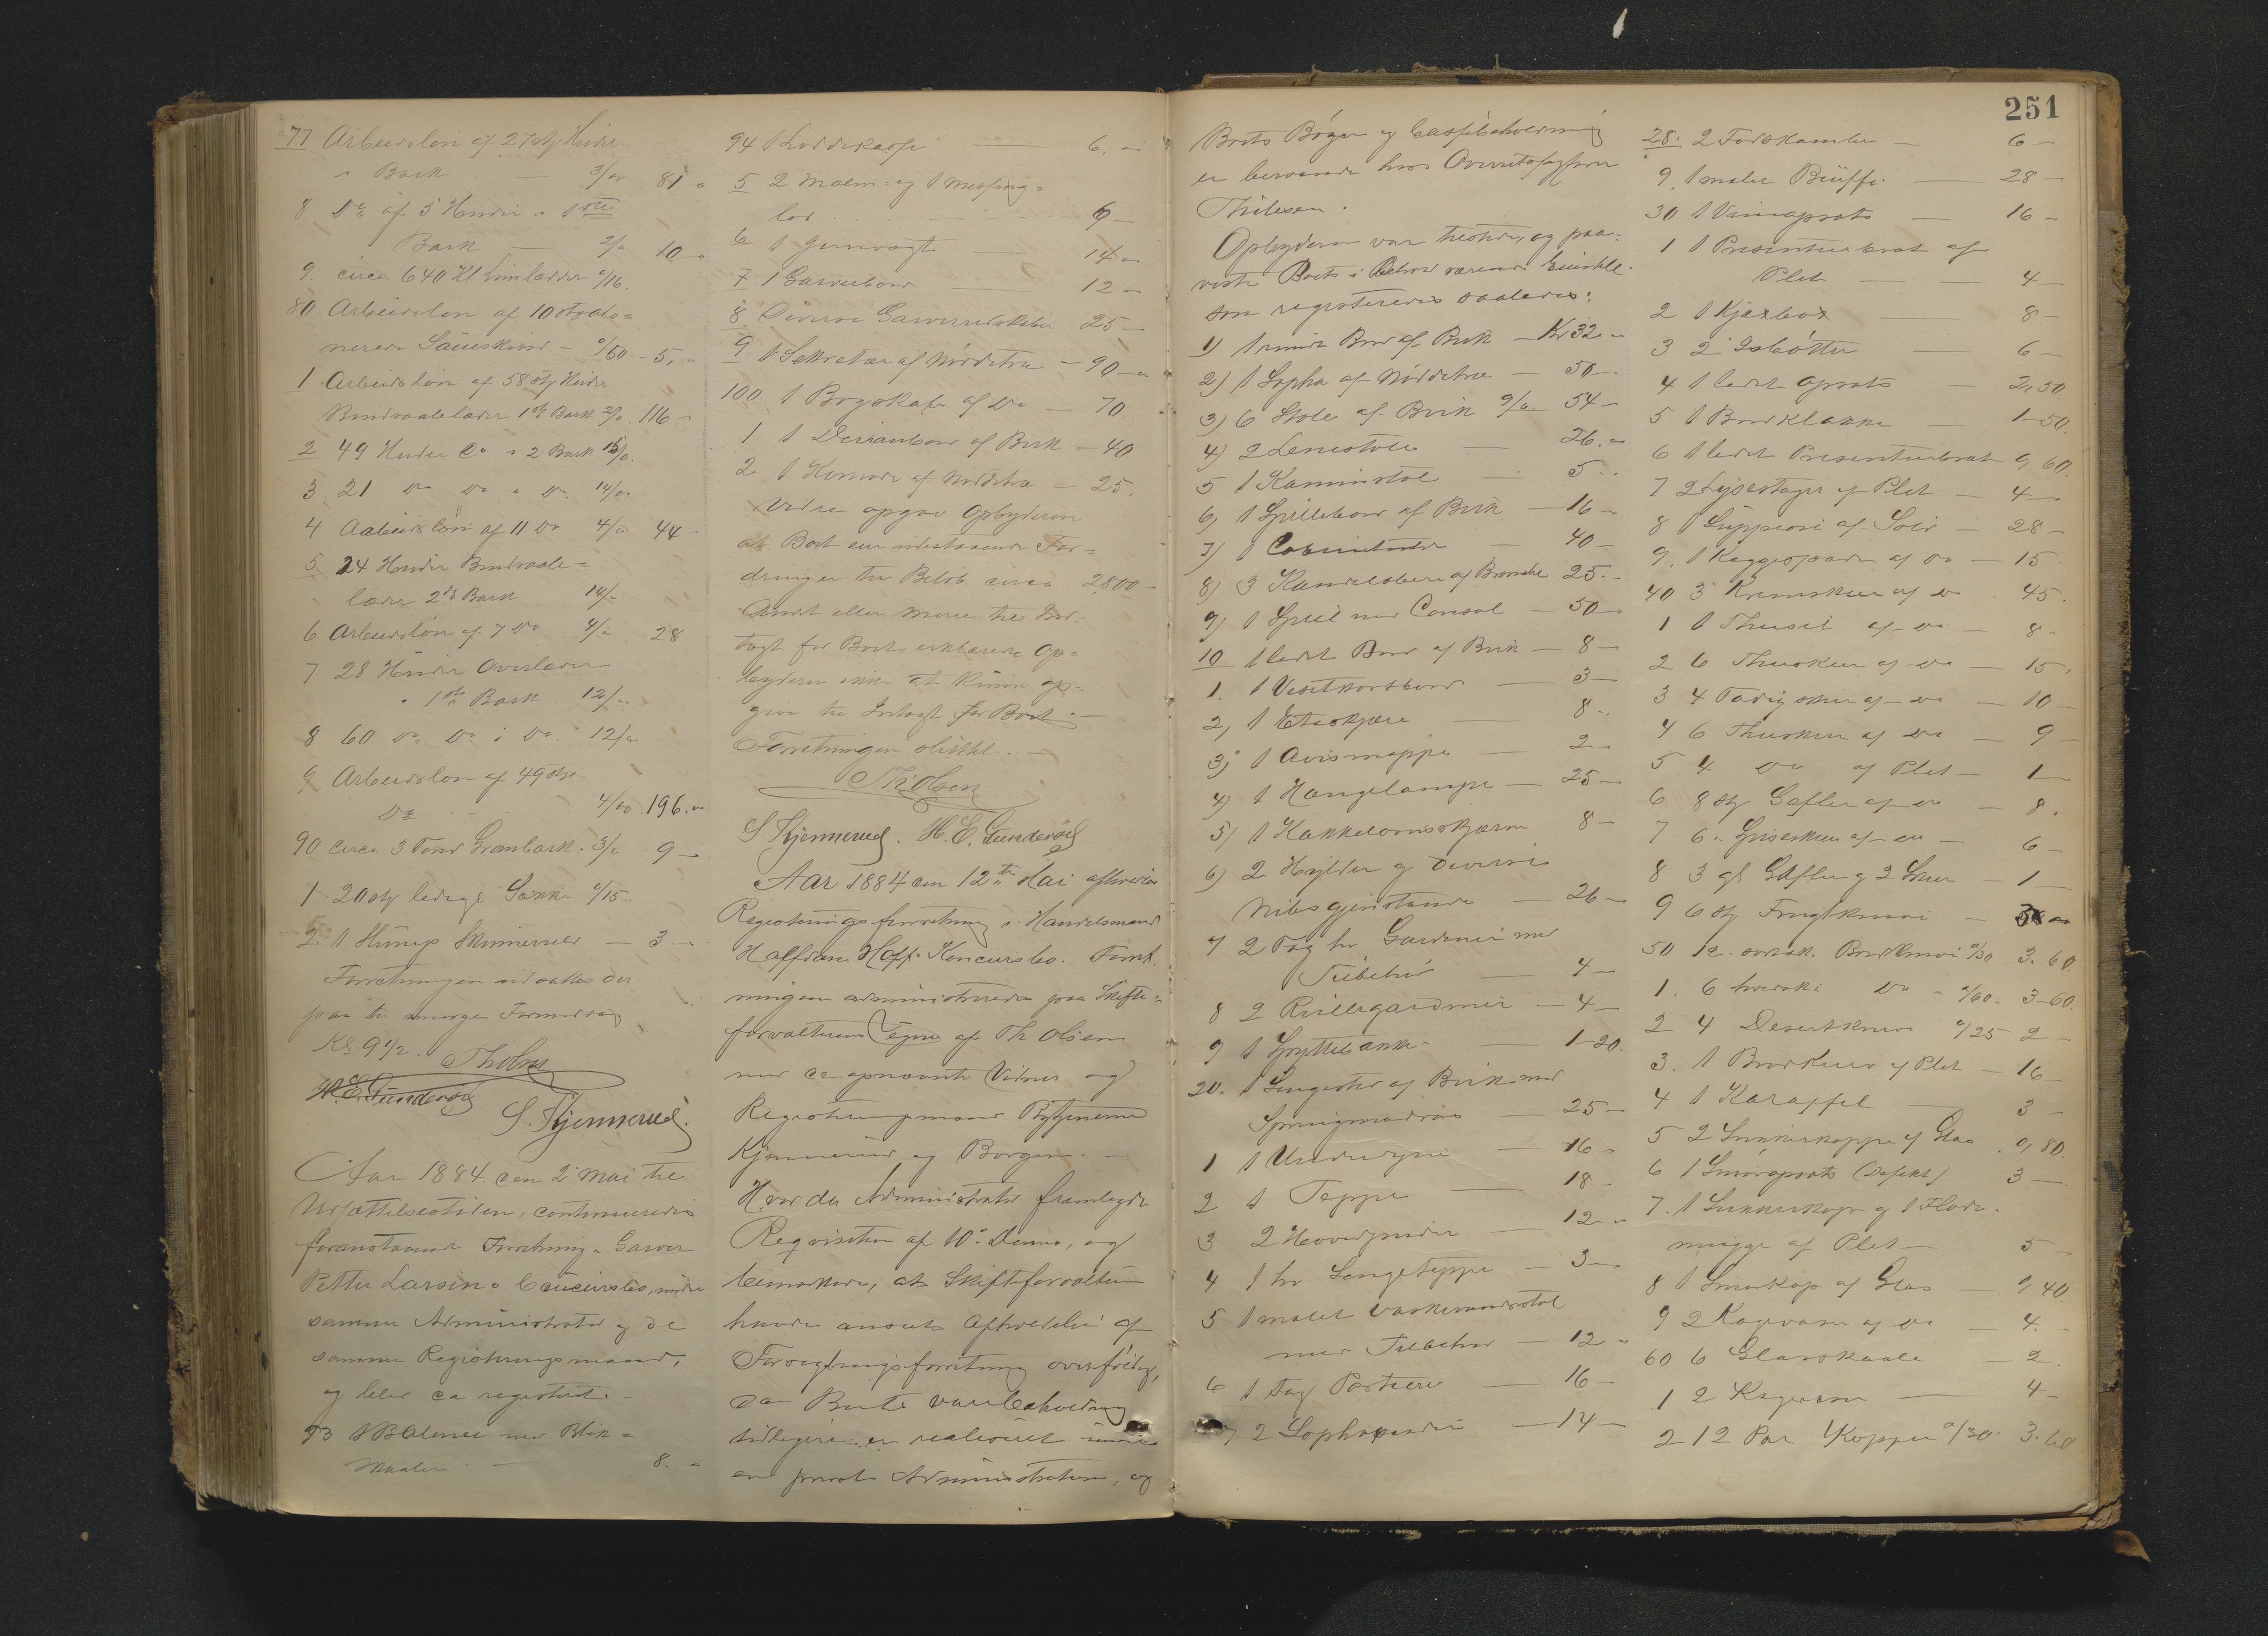 77 Arbeidslön af 27 stk Huder
i Bark — 3/00 81 "
8 Do af 5 Huder i 1ste
Bark — 2/" 10 "
9 circa 640 Kl Limlæder "/16.
80 Arbeidslon af 10 stk
Saueskind — "/50 — 5, "
1 Arbeidslön af 58 stk Huder
Bindsaalelæder 1ste Bark 2/" 116 —
2 49 Huder Do i 2 Bark 15/".
3 21 Do Do i Do 14/"
4 Arbeidslön af 11 Do 4/" 44 —
5 24 Huder Bindsaale=
læder 2de Bark 14/"
6 Arbeidslön af 7 Do 4/" 28
7 28 Huder Overlæder
i 1ste Bark 12/"
8 60 Do Do i Do 12/"
9 Arbeidslon af 49 stk
Do 4/00 196 "
90 circa 3 Tond Granbark 3/" 9 —
1 20 stk ledige Sække "/15
2 1 — 3 —
Forretningen udsattes der
paa til imorgen Formiddag
Kl 9 1/2. Th Olsen
H. E. Gundersen
S. Kjennerud.
Aar 1884 den 2 Mai til
Udsættelsestiden, continueredes
foranstaaende Forretning i Garver
Petter Larsens Concursbo, under
samme Administrator og de
samme Registreringsmænd,
og blev da registreret.
93 1 Balance med Blik=
skaaler — 8. "
94 1 Loddekasse — 6. —
5 2 Malm- og 1 Messing=
lod 6 —
6 1 Jernvægt — 14 "
7 1 Garverbord — 12 —
8 Diverse Garverredskaber 25 —
9 1 Sekretær af Nöddetræ — 90 —
100 1 Bogskab af Do — 70
1 1 Bord af Birk — 40
2 1 Komode af Nöddetræ — 25.
Videre opgav Opbyderen
at Boet eier udestaaende For=
dringer til Belöb circa 2800 —
Andet eller mere til Ind=
tægt for Boet erklærede Op=
byderen ikke at kunne op=
give til Indtægt for Boet. —
Forretningen sluttet. —
Th Olsen
S. Kjennerud. H. E. Gundersen
Aar 1884 den 12te Mai afholdtes
Registreringsforretning i Handelsmand
Halfdan Hoff's Koncursbo. Forret-
ningen administreredes paa Skifte=
forvalterens Vegne af Th Olsen
med de opnævnte Vidner og
Registreringsmænd
Kjennerud og Borgen. —
Hvor da Administrator fremlagde
Reqvisition af 10de Dennes, og
bemærkede, at Skifteforvalteren
havde anseet Afholdelse af
Forseglingsforretning overflödig,
da Boets Varebeholdning
tidligere er realiseret under
en privat Administration, og
251
Boets Böger og Cassebeholdning
er beroende hos Overretssagförer
Thilesen.
Opbyderen var tilstede, og paa=
viste Boets i Behold værende Eiendele
som registreredes saaledes:
1) 1 rundt Bord af Birk — Kr 32 "
2) 1 Sopha af Nöddetræ — 50 —
3) 6 Stole af Birk 9/" 54 —
4) 2 Lenestole — 26. "
5 1 Kaminstol — 5 "
6) 1 Spillebord af Birk — 16 —
7) 1 — 40 —
8) 3 Kandelabere af Bronche 25 —
9) 1 Speil med Consol — 50 —
10 1 lidet Bord af Birk — 8 —
1. 1 Visitkortbord — 3 —
2) 1 Etaskjære — 8 "
3) 1 Avismappe — 2 —
4) 1 Hængelampe — 25 —
5) 1 Kakkelovnsskjærm 8 —
6) 2 Hylder og diverse
Nibsgjenstande — 26 —
7 2 Fag hv Gardiner med
Tilbehör — 4 —
8 2 Rullegardiner — 4 —
9 1 Spyttebakke — 1 20
20. 1 Sengested af Birk med
Springmadras — 25 —
1 1 Underdyne — 16 "
2 1 Teppe — 18 —
3 2 Hovedpuder — 12 "
4 1 hv Sengeteppe — 3 —
5 1 malet Vaskevandsstol
med Tilbehör — 12 "
6 1 Fag Portierer — 16 —
7 2 Sophapuder — 14 —
28. 2 — 6 —
9. 1 malet Büffe — 28 —
30 1 — 16 —
1 1 Presenterbret af
Plet — 4 —
2 1 — 8 —
3 2 Isbötter — 6 —
4 1 lidet Opsats — 2,50
5 1 Bordklokke — 1-50
6 1 lidet Presenterbret 0,60
7 2 Lysestager af Plet — 4 —
8 1 Suppeose af Sölv — 28 —
9. 1 Kaggespade af Do — 15
40 3 Kremskeer af Do 45.
1 1 Thesil af Do — 8 —
2 6 Theskeer af Do — 15.
3 4 skeer af Do — 10 —
4 6 Theskeer af Do — 9 —
5 4 Do af Plet — 1 —
6 8 stk Gafler af Do — 8.
7 6 " Spiseskeer af Do — 6 —
8 3 gl Gafler og 2 Skeer — 1 —
9 6 stk Frugtknive —
50 12 Bordknive "/30 3.60
1. 6 Do "/60 3-60
2 4 Desertknive "/25 2 —
3. 1 Brödkurv af Plet — 16
4 1 Karaffel — 3 —
5 2 Sukkerkopper af Glas 0,80.
6 1 Smöropsats (Defekt) 3 —
7. 1 Sukkerkop og 1 Flöde-
mugge af Plet — 5 —
8 1 Smörkop af Glas — 0,40
9 2 Kagevaser af Do — 4.
60 6 Glasskaale — 2.
1 2 Kagevaser — 4 —
2 12 Par Kopper "/30 3.60